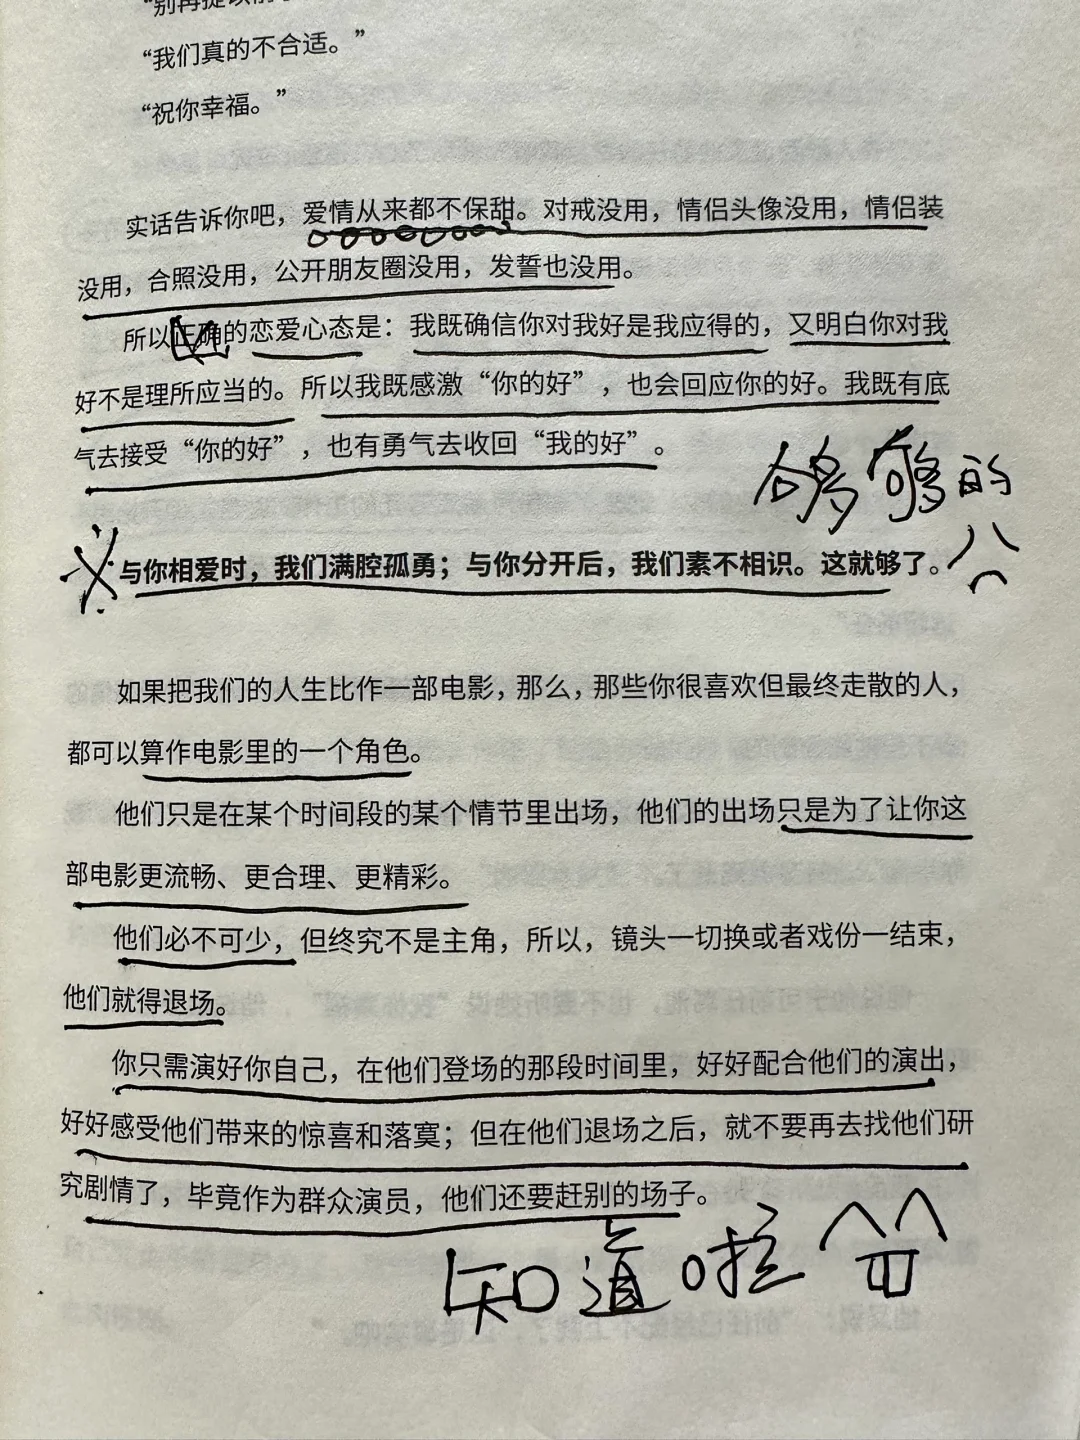 “我们真的不合适。”
“祝你幸福。”
实话告诉你吧，爱情从来都不保甜。对戒没用，情侣头像没用，情侣装
没用，合照没用，公开朋友圈没用，发誓也没用。
所以正确的恋爱心态是：我既确信你对我好是我应得的，又明白你对我
好不是理所应当的。所以我既感激“你的好”，也会回应你的好。我既有底
气去接受“你的好”，也有勇气去收回“我的好”。
够够的
与你相爱时，我们满腔孤勇；与你分开后，我们素不相识。这就够了。
如果把我们的人生比作一部电影，那么，那些你很喜欢但最终走散的人，
都可以算作电影里的一个角色。
他们只是在某个时间段的某个情节里出场，他们的出场只是为了让你这
部电影更流畅、更合理、更精彩。
他们必不可少，但终究不是主角，所以，镜头一切换或者戏份一结束，
他们就得退场。
你只需演好你自己，在他们登场的那段时间里，好好配合他们的演出，
好好感受他们带来的惊喜和落寞；但在他们退场之后，就不要再去找他们研
究剧情了，毕竟作为群众演员，他们还要赶别的场子。
知道啦